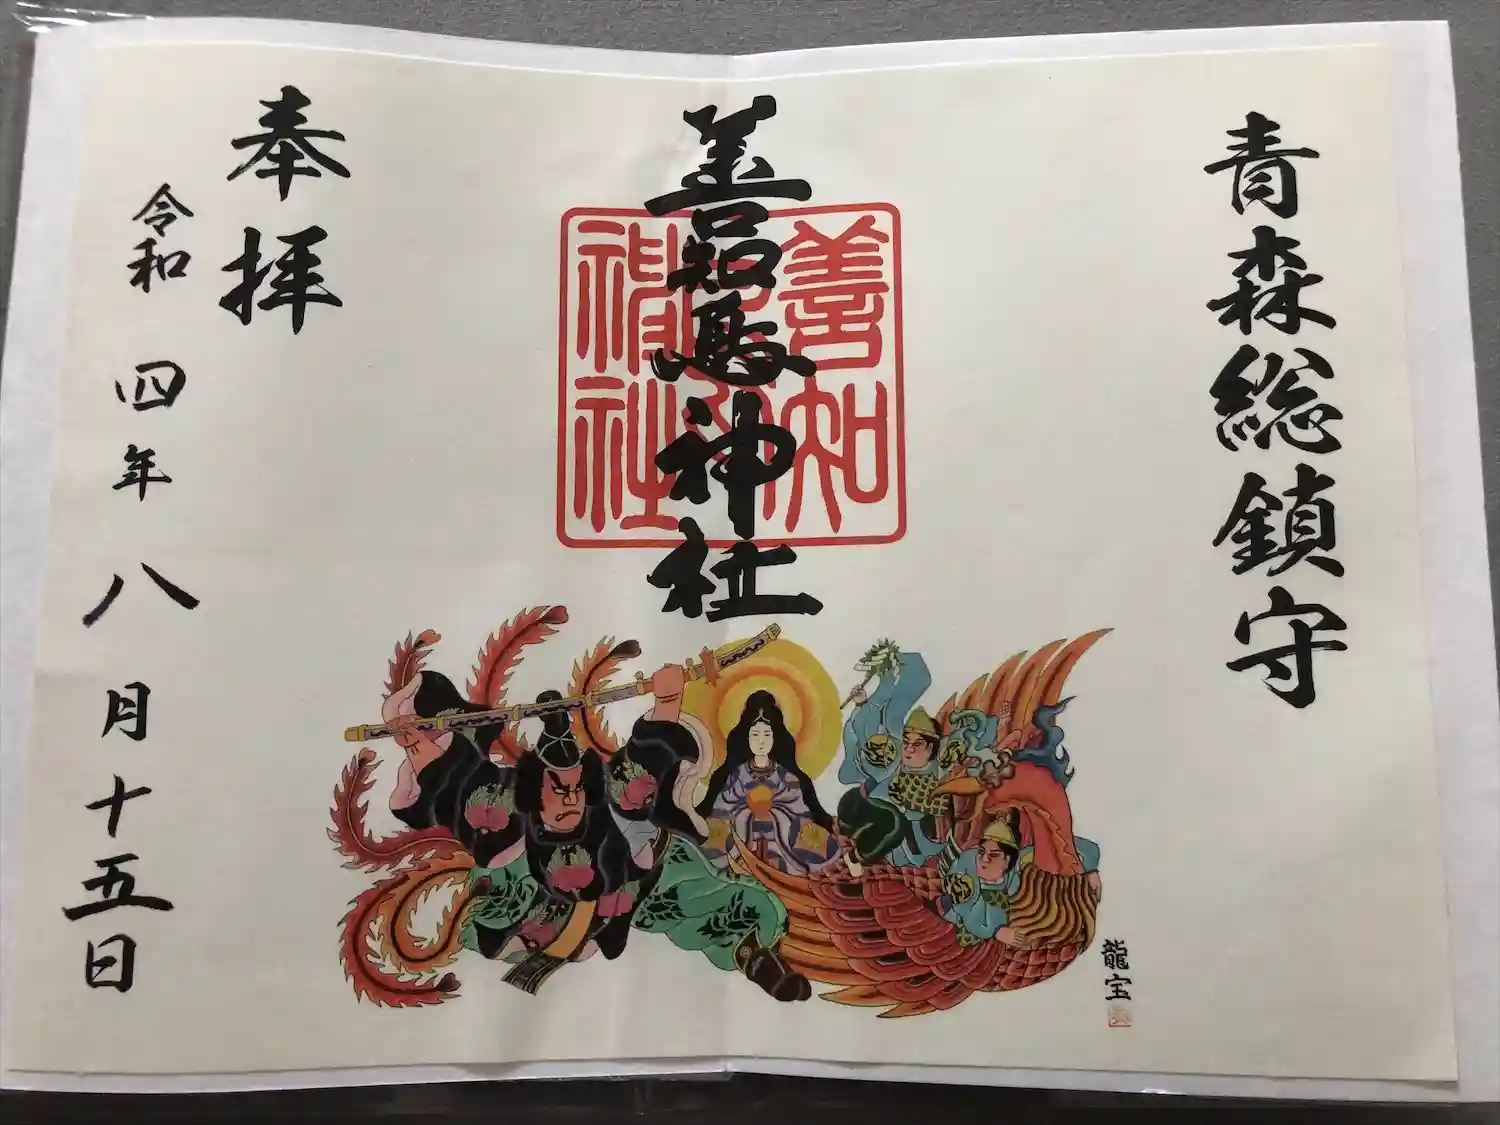 青森総鎮守
善知鳥神社
善知鳥神社
奉拝
令和四年八月十五日
龍宝